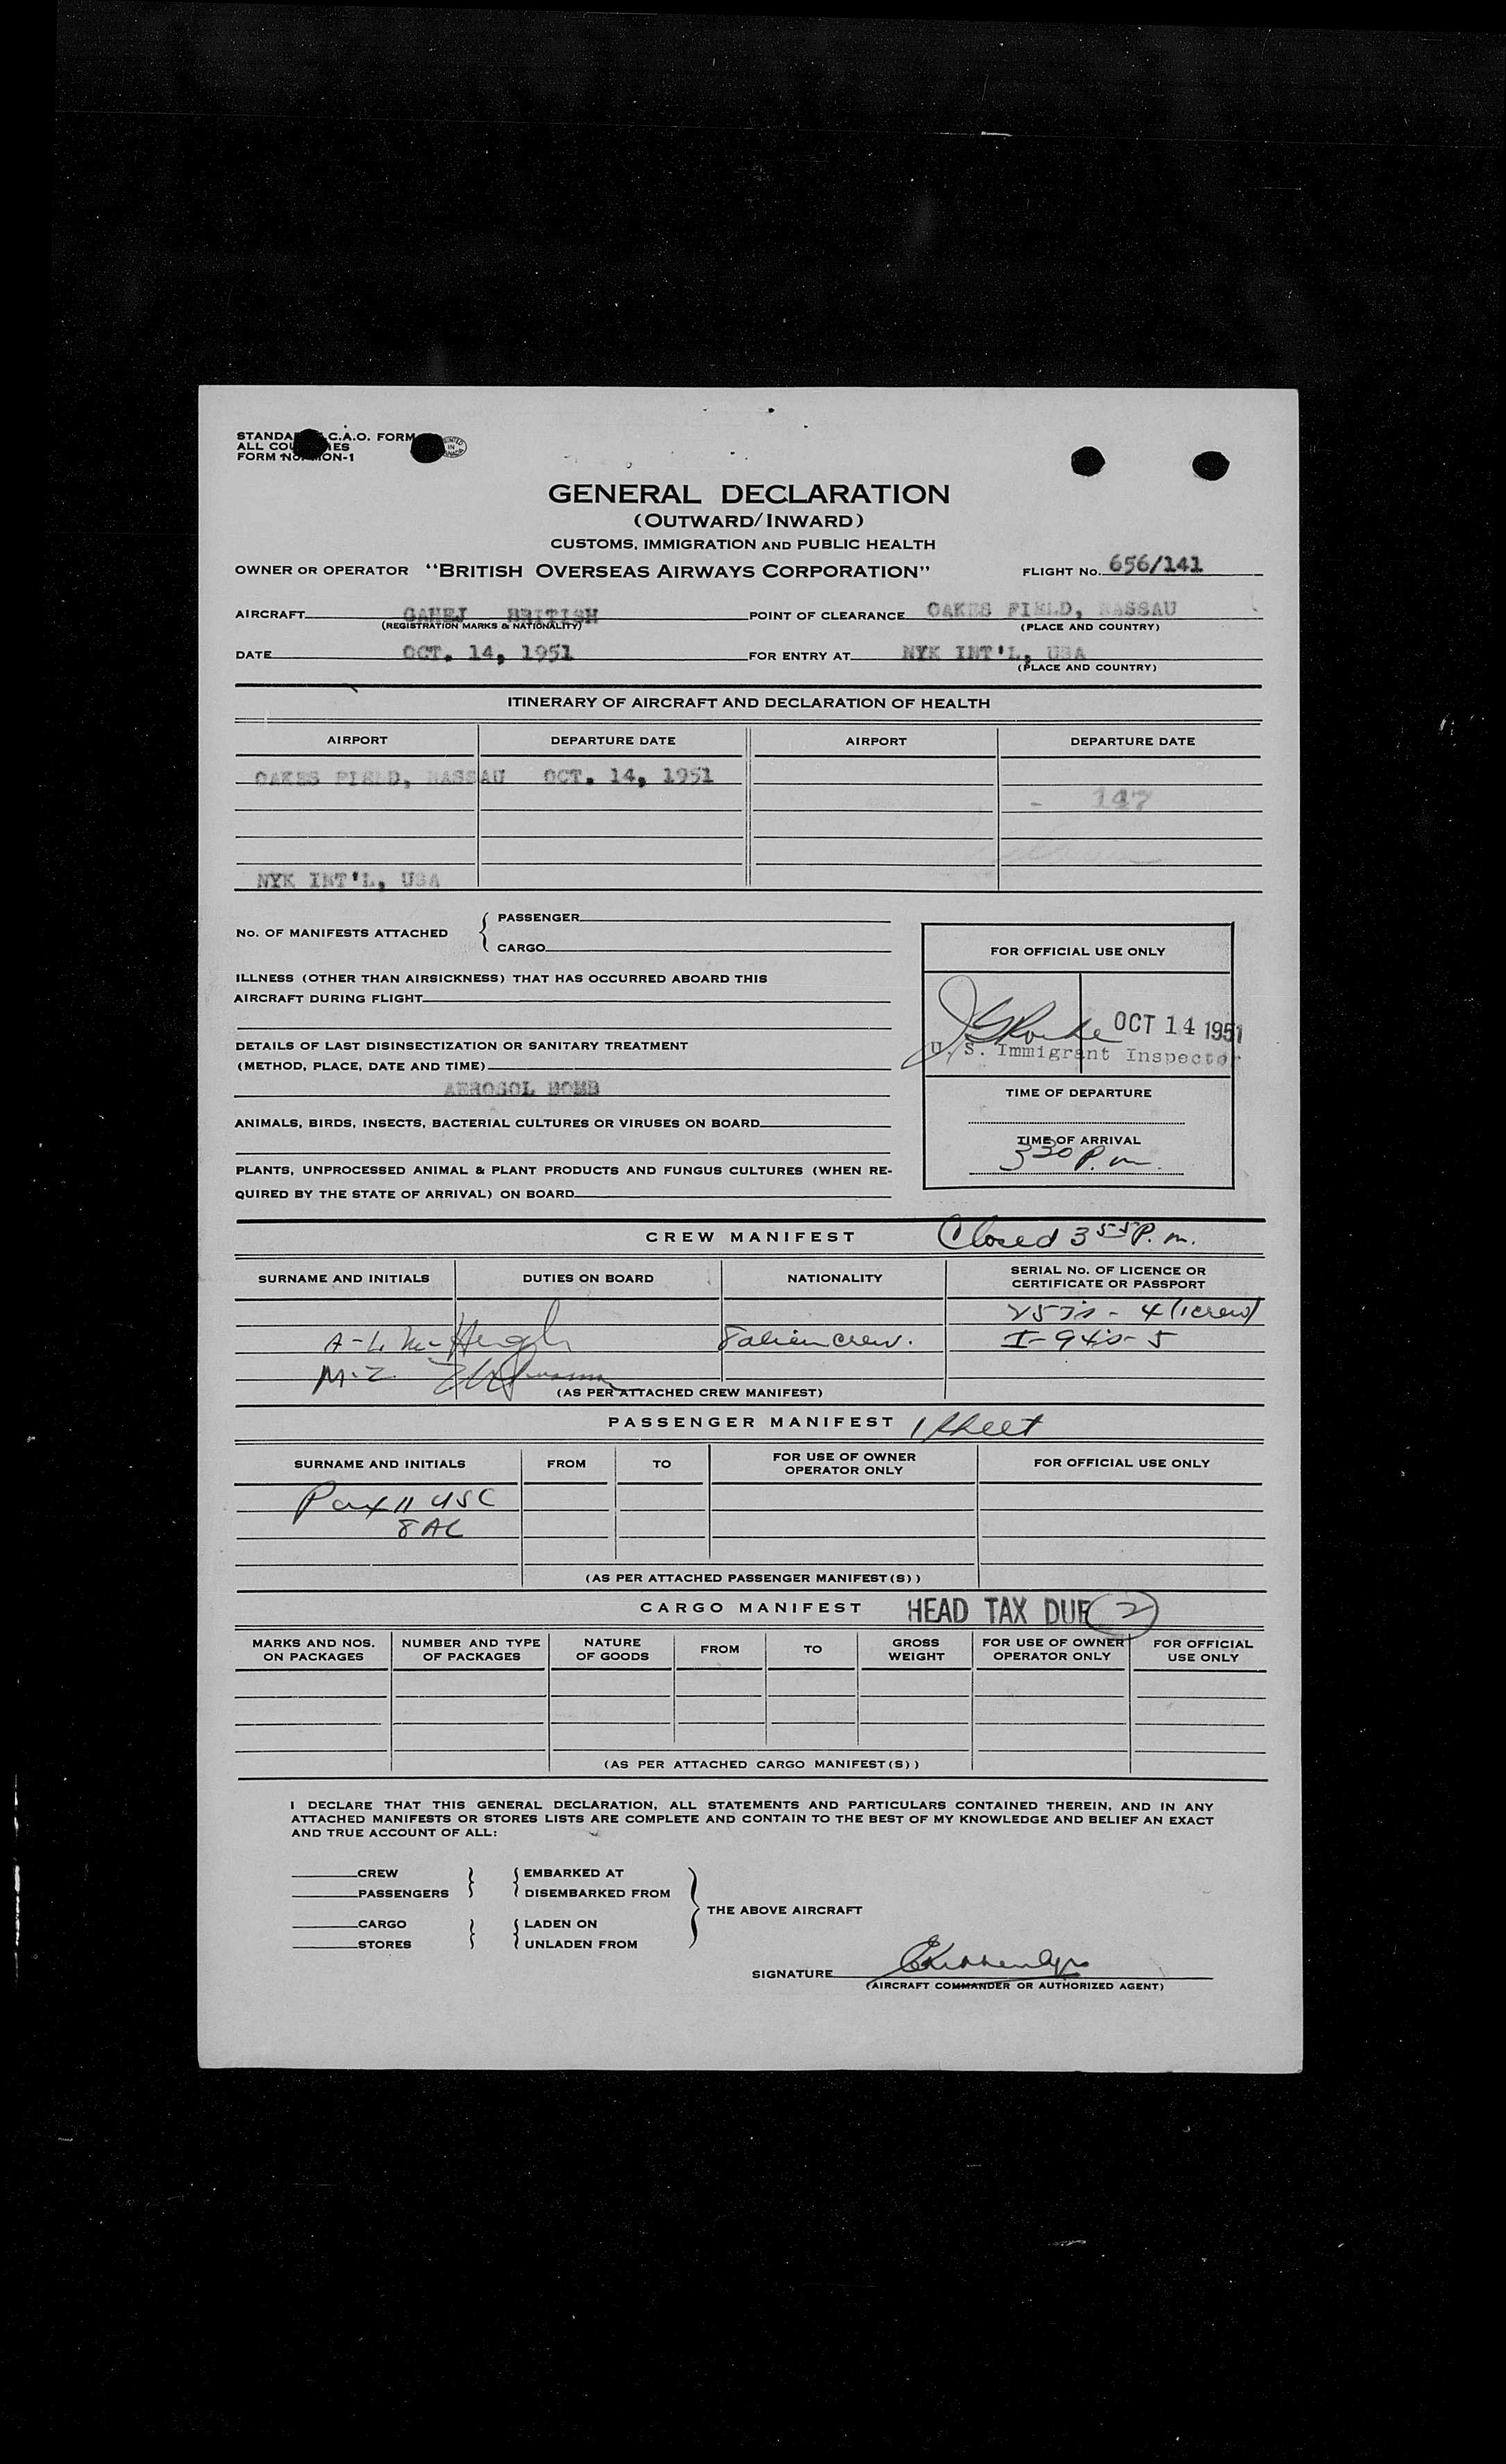 STANDA C.A.O. FORM
ALL COU IES
FORM NO. ON-1
PRINTED IN CANADA
GENERAL DECLARATION
(OUTWARD/INWARD)
CUSTOMS, IMMIGRATION AND PUBLIC HEALTH
OWNER OR OPERATOR "BRITISH OVERSEAS AIRWAYS CORPORATION" FLIGHT No. 656/141
AIRCRAFT GAHEJ BRITISH POINT OF CLEARANCE OAKES FIELD, NASSAU
(REGISTRATION MARKS & NATIONALITY) (PLACE AND COUNTRY)
DATE OCT. 14, 1951 FOR ENTRY AT NYK INT'L, USA
(PLACE AND COUNTRY)
ITINERARY OF AIRCRAFT AND DECLARATION OF HEALTH
AIRPORT DEPARTURE DATE AIRPORT DEPARTURE DATE
OAKES FIELD, NASSAU OCT. 14, 1951
- 147
NYK INT'L, USA
No. OF MANIFESTS ATTACHED PASSENGER
CARGO
FOR OFFICIAL USE ONLY
ILLNESS (OTHER THAN AIRSICKNESS) THAT HAS OCCURRED ABOARD THIS
AIRCRAFT DURING FLIGHT
OCT 14 1951
U. S. Immigrant Inspector
DETAILS OF LAST DISINSECTIZATION OR SANITARY TREATMENT
(METHOD, PLACE, DATE AND TIME)
AEROSOL BOMB
TIME OF DEPARTURE
ANIMALS, BIRDS, INSECTS, BACTERIAL CULTURES OR VIRUSES ON BOARD
TIME OF ARRIVAL
330 P.m.
PLANTS, UNPROCESSED ANIMAL & PLANT PRODUCTS AND FUNGUS CULTURES (WHEN RE-
QUIRED BY THE STATE OF ARRIVAL) ON BOARD
CREW MANIFEST Closed 355 P.m.
SURNAME AND INITIALS DUTIES ON BOARD NATIONALITY SERIAL No. OF LICENCE OR
CERTIFICATE OR PASSPORT
257's - 4 (1 crew)
A-L. McHugh 8 alien crew. I-94's - 5
M.Z.
(AS PER ATTACHED CREW MANIFEST)
PASSENGER MANIFEST 1 sheet
SURNAME AND INITIALS FROM TO FOR USE OF OWNER
OPERATOR ONLY FOR OFFICIAL USE ONLY
Pax 11 USC
8 AL
(AS PER ATTACHED PASSENGER MANIFEST(S))
CARGO MANIFEST HEAD TAX DUE 2
MARKS AND NOS.
ON PACKAGES NUMBER AND TYPE
OF PACKAGES NATURE
OF GOODS FROM TO GROSS
WEIGHT FOR USE OF OWNER
OPERATOR ONLY FOR OFFICIAL
USE ONLY
(AS PER ATTACHED CARGO MANIFEST(S))
I DECLARE THAT THIS GENERAL DECLARATION, ALL STATEMENTS AND PARTICULARS CONTAINED THEREIN, AND IN ANY
ATTACHED MANIFESTS OR STORES LISTS ARE COMPLETE AND CONTAIN TO THE BEST OF MY KNOWLEDGE AND BELIEF AN EXACT
AND TRUE ACCOUNT OF ALL:
CREW EMBARKED AT
PASSENGERS DISEMBARKED FROM
THE ABOVE AIRCRAFT
CARGO LADEN ON
STORES UNLADEN FROM
SIGNATURE
(AIRCRAFT COMMANDER OR AUTHORIZED AGENT)